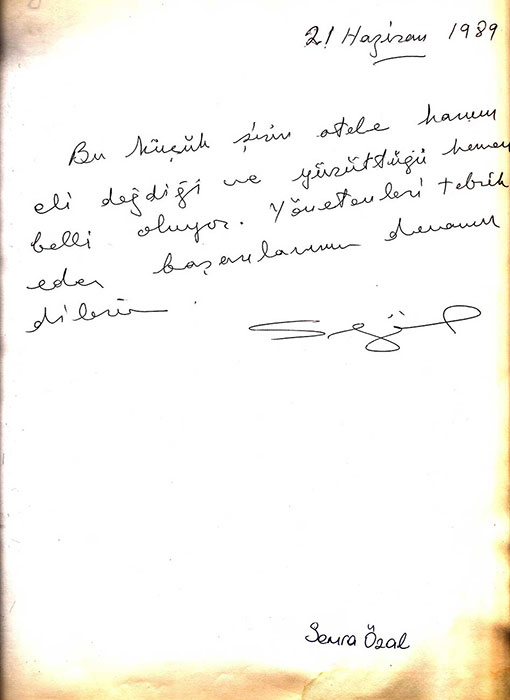 21 Haziran 1989
Bu küçük şirin otele hanım
eli değdiği ve yürüttüğü hemen
belli oluyor. Yönetenleri tebrik
eder başarılarının devamını
dilerim.
Semra Özal